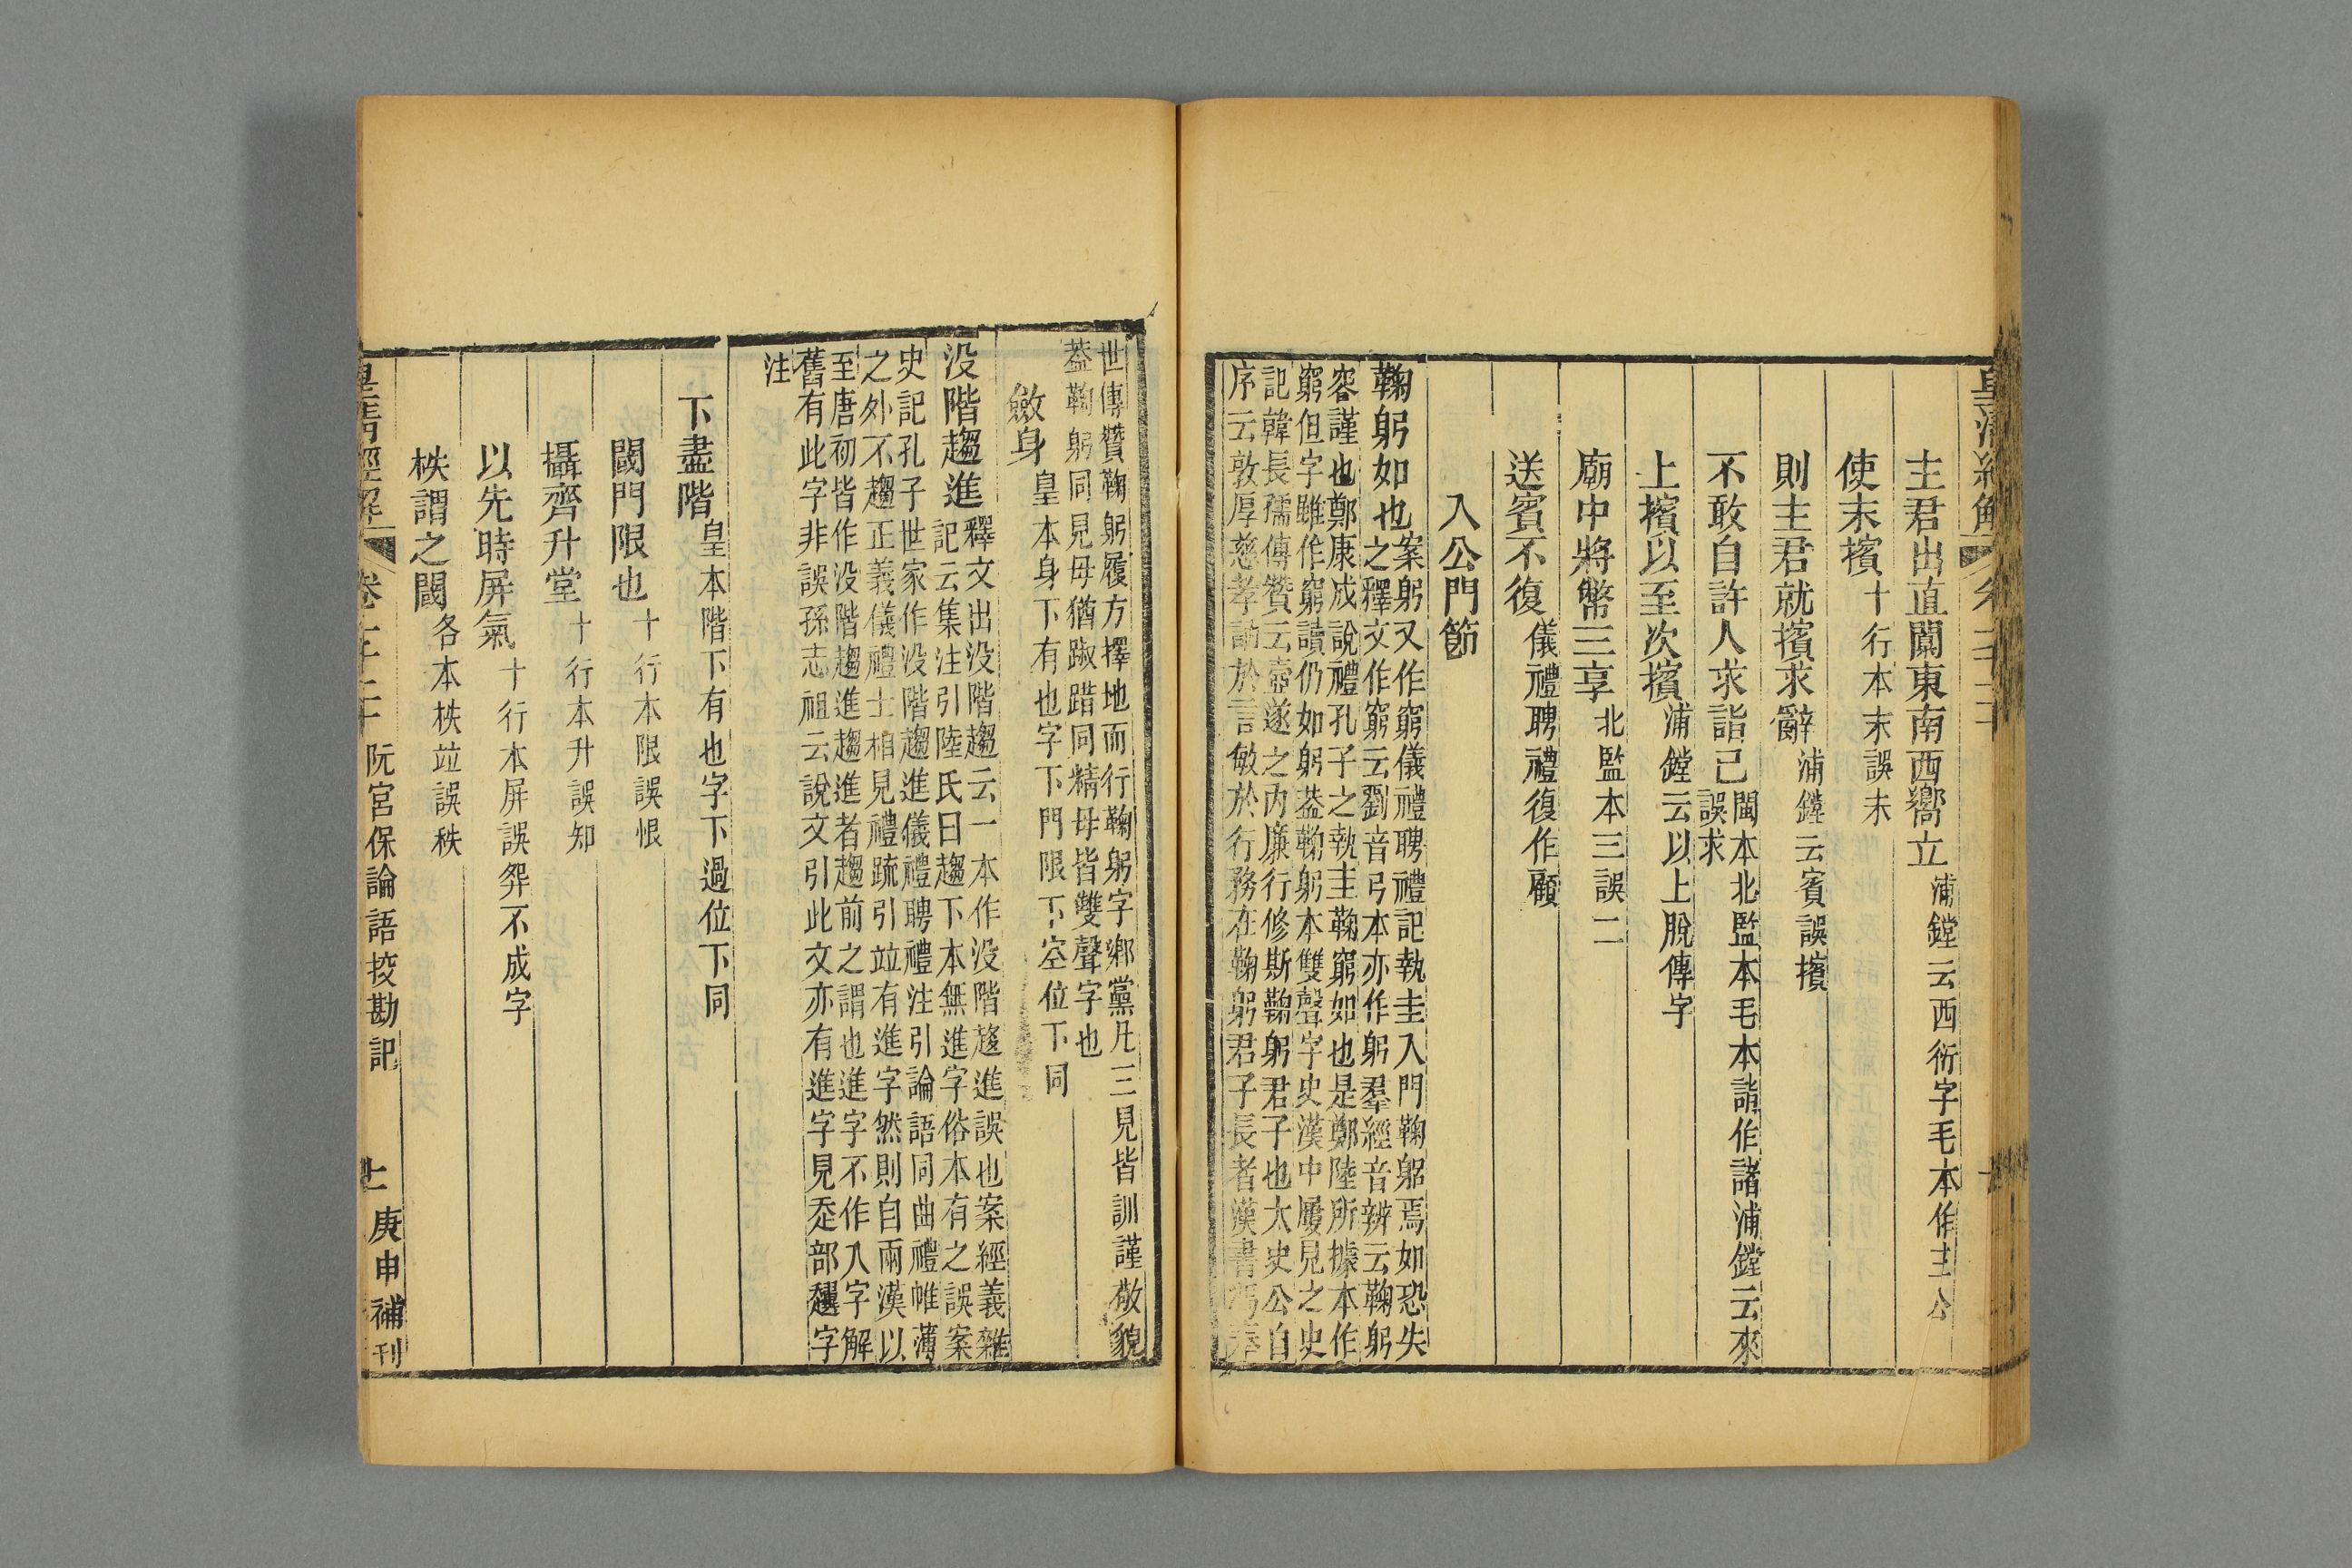 主君出直闑東南西嚮立浦鏜云西衍字毛本作主公
使末擯十行本末誤未
則主君就擯求辭浦鏜云賓誤擯
不敢自許人求詣已閩本北監本毛本詣作諸浦鏜云來
誤求
上擯以至次擯浦鏜云以上脫傳字
廟中將幣三享北監本三誤二
送賓不復儀禮聘禮復作顧
入公門節
鞠躬如也案躬又作窮儀禮聘禮記執圭入門鞠躬焉如恐失
之釋文作窮云劉音弓本亦作躬羣經音辨云鞠躬
容謹也鄭康成說禮孔子之執圭鞠窮如也是鄭陸所據本作
窮但字雖作窮讀仍如躬葢鞠躬本雙聲字史漢中屢見之史
記韓長孺傳贊云壺遂之內廉行修斯鞠躬君子也太史公自
序云敦厚慈孝訥於言敏於行務在鞠躬君子長者漢書馮奉
世傳贊鞠躬履方擇地而行鞠躬字鄉黨凡三見皆訓謹敬貌
葢鞠躬同見毋猶踧踖同精毋皆雙聲字也
斂身皇本身下有也字下門限下空位下同
没階趨進釋文出没階趨云一本作没階趨進誤也案經義雜
記云集注引陸氏曰趨下本無進字俗本有之誤案
史記孔子世家作没階趨進儀禮聘禮注引論語同曲禮帷薄
之外不趨正義儀禮士相見禮疏引竝有進字然則自兩漢以
至唐初皆作没階趨進趨進者趨前之謂也進字不作入字解
舊有此字非誤孫志祖云說文引此文亦有進字見走部趯字
注
下盡階皇本階下有也字下過位下同
閾門限也十行本限誤恨
攝齊升堂十行本升誤知
以先時屏氣十行本屏誤㢏不成字
柣謂之閾各本柣竝誤秩
皇清經解 卷 阮宮保論語挍勘記 十一 庚申補刊